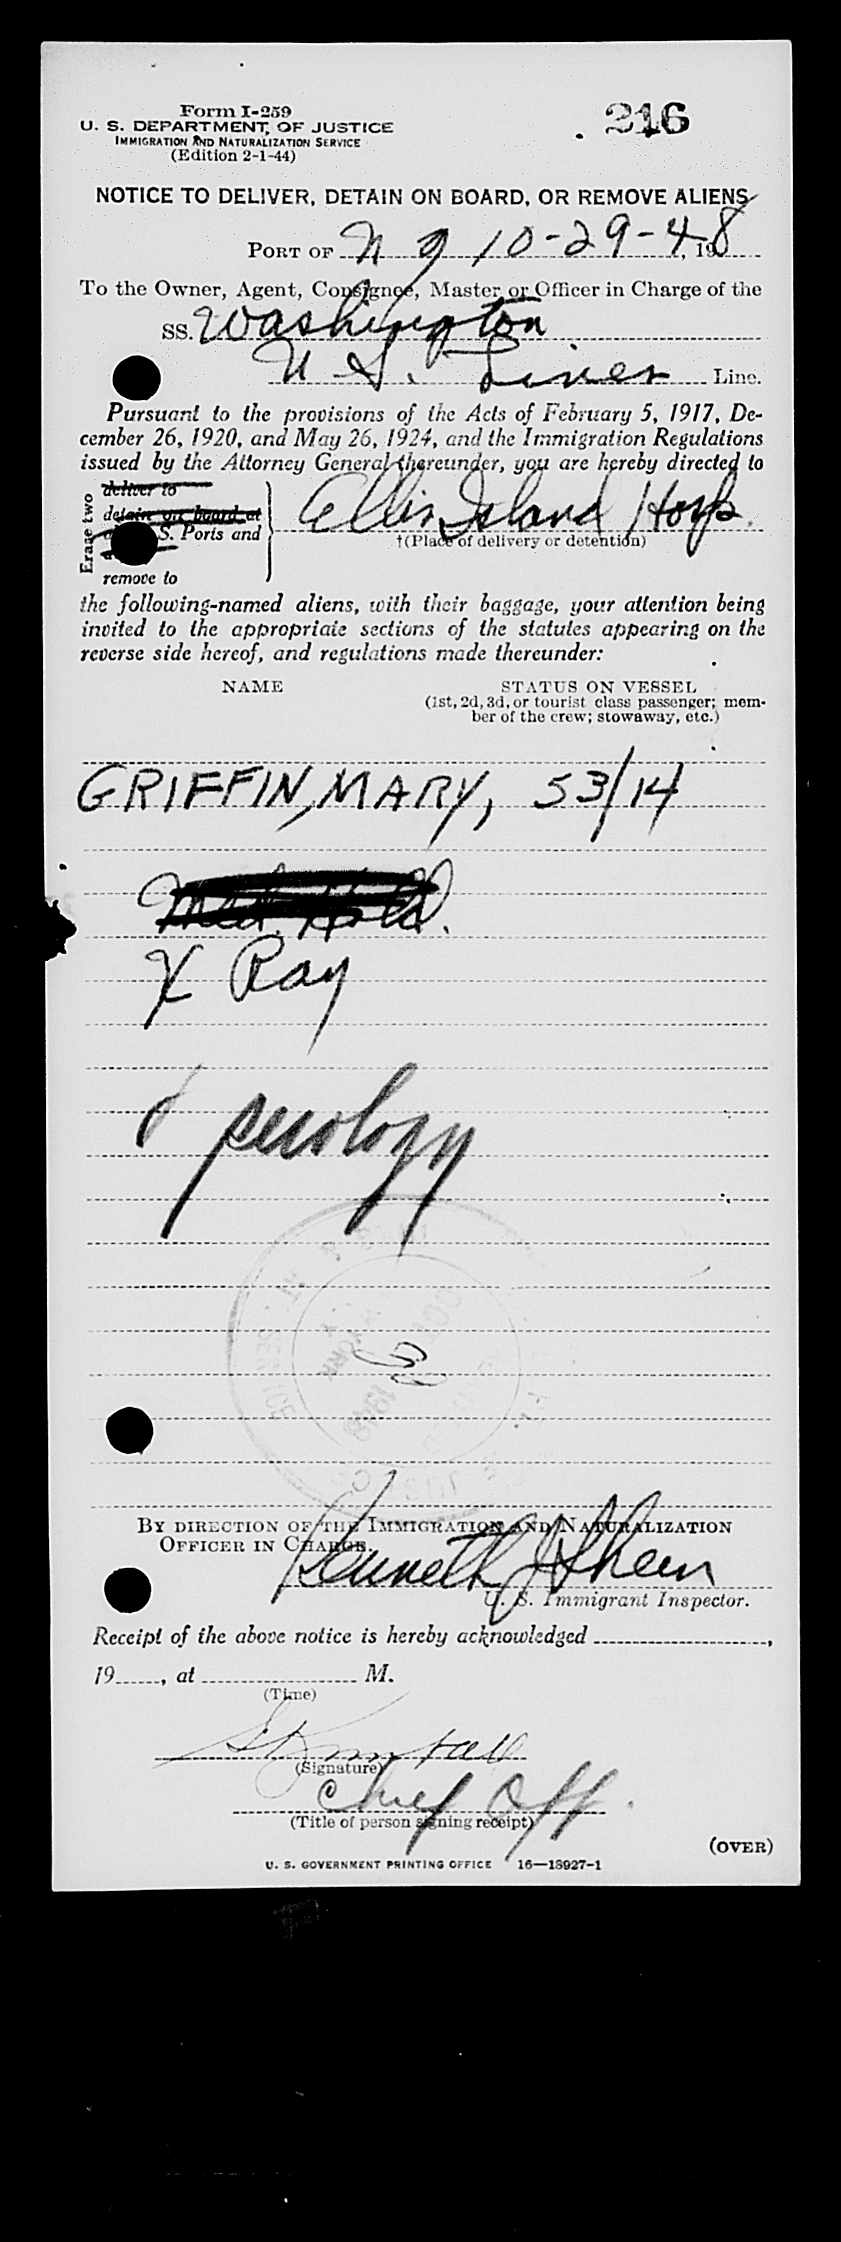 Form I-259
216
U. S. DEPARTMENT OF JUSTICE
IMMIGRATION AND NATURALIZATION SERVICE
(Edition 2-1-44)
NOTICE TO DELIVER, DETAIN ON BOARD, OR REMOVE ALIENS
PORT OF N Y 10-29-48, 19
To the Owner, Agent, Consignee, Master or Officer in Charge of the
SS. Washington
U.S. Lines Line.
Pursuant to the provisions of the Acts of February 5, 1917, De-
cember 26, 1920, and May 26, 1924, and the Immigration Regulations
issued by the Attorney General thereunder, you are hereby directed to
Erase two
deliver to
detain on board at
S. Ports and
remove to
Ellis Island Hosp.
†(Place of delivery or detention)
the following-named aliens, with their baggage, your attention being
invited to the appropriate sections of the statutes appearing on the
reverse side hereof, and regulations made thereunder:
NAME STATUS ON VESSEL
(1st, 2d, 3d, or tourist class passenger; mem-
ber of the crew; stowaway, etc.)
GRIFFIN, MARY, 53/14
Med. Hold.
X Ray
serology
BY DIRECTION OF THE IMMIGRATION AND NATURALIZATION
OFFICER IN CHARGE.
Kenneth J Sheen
U. S. Immigrant Inspector.
Receipt of the above notice is hereby acknowledged
19, at M.
(Time)
(Signature)
Chief Off.
(Title of person signing receipt)
(OVER)
U. S. GOVERNMENT PRINTING OFFICE 16—13927-1